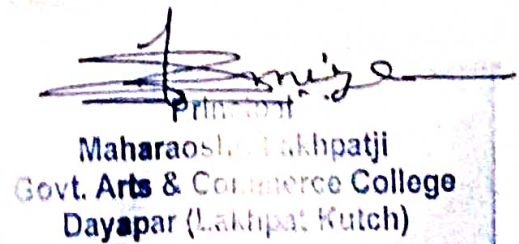 Principal
Maharaoshri Lakhpatji
Govt. Arts & Commerce College
Dayapar (Lakhpat Kutch)